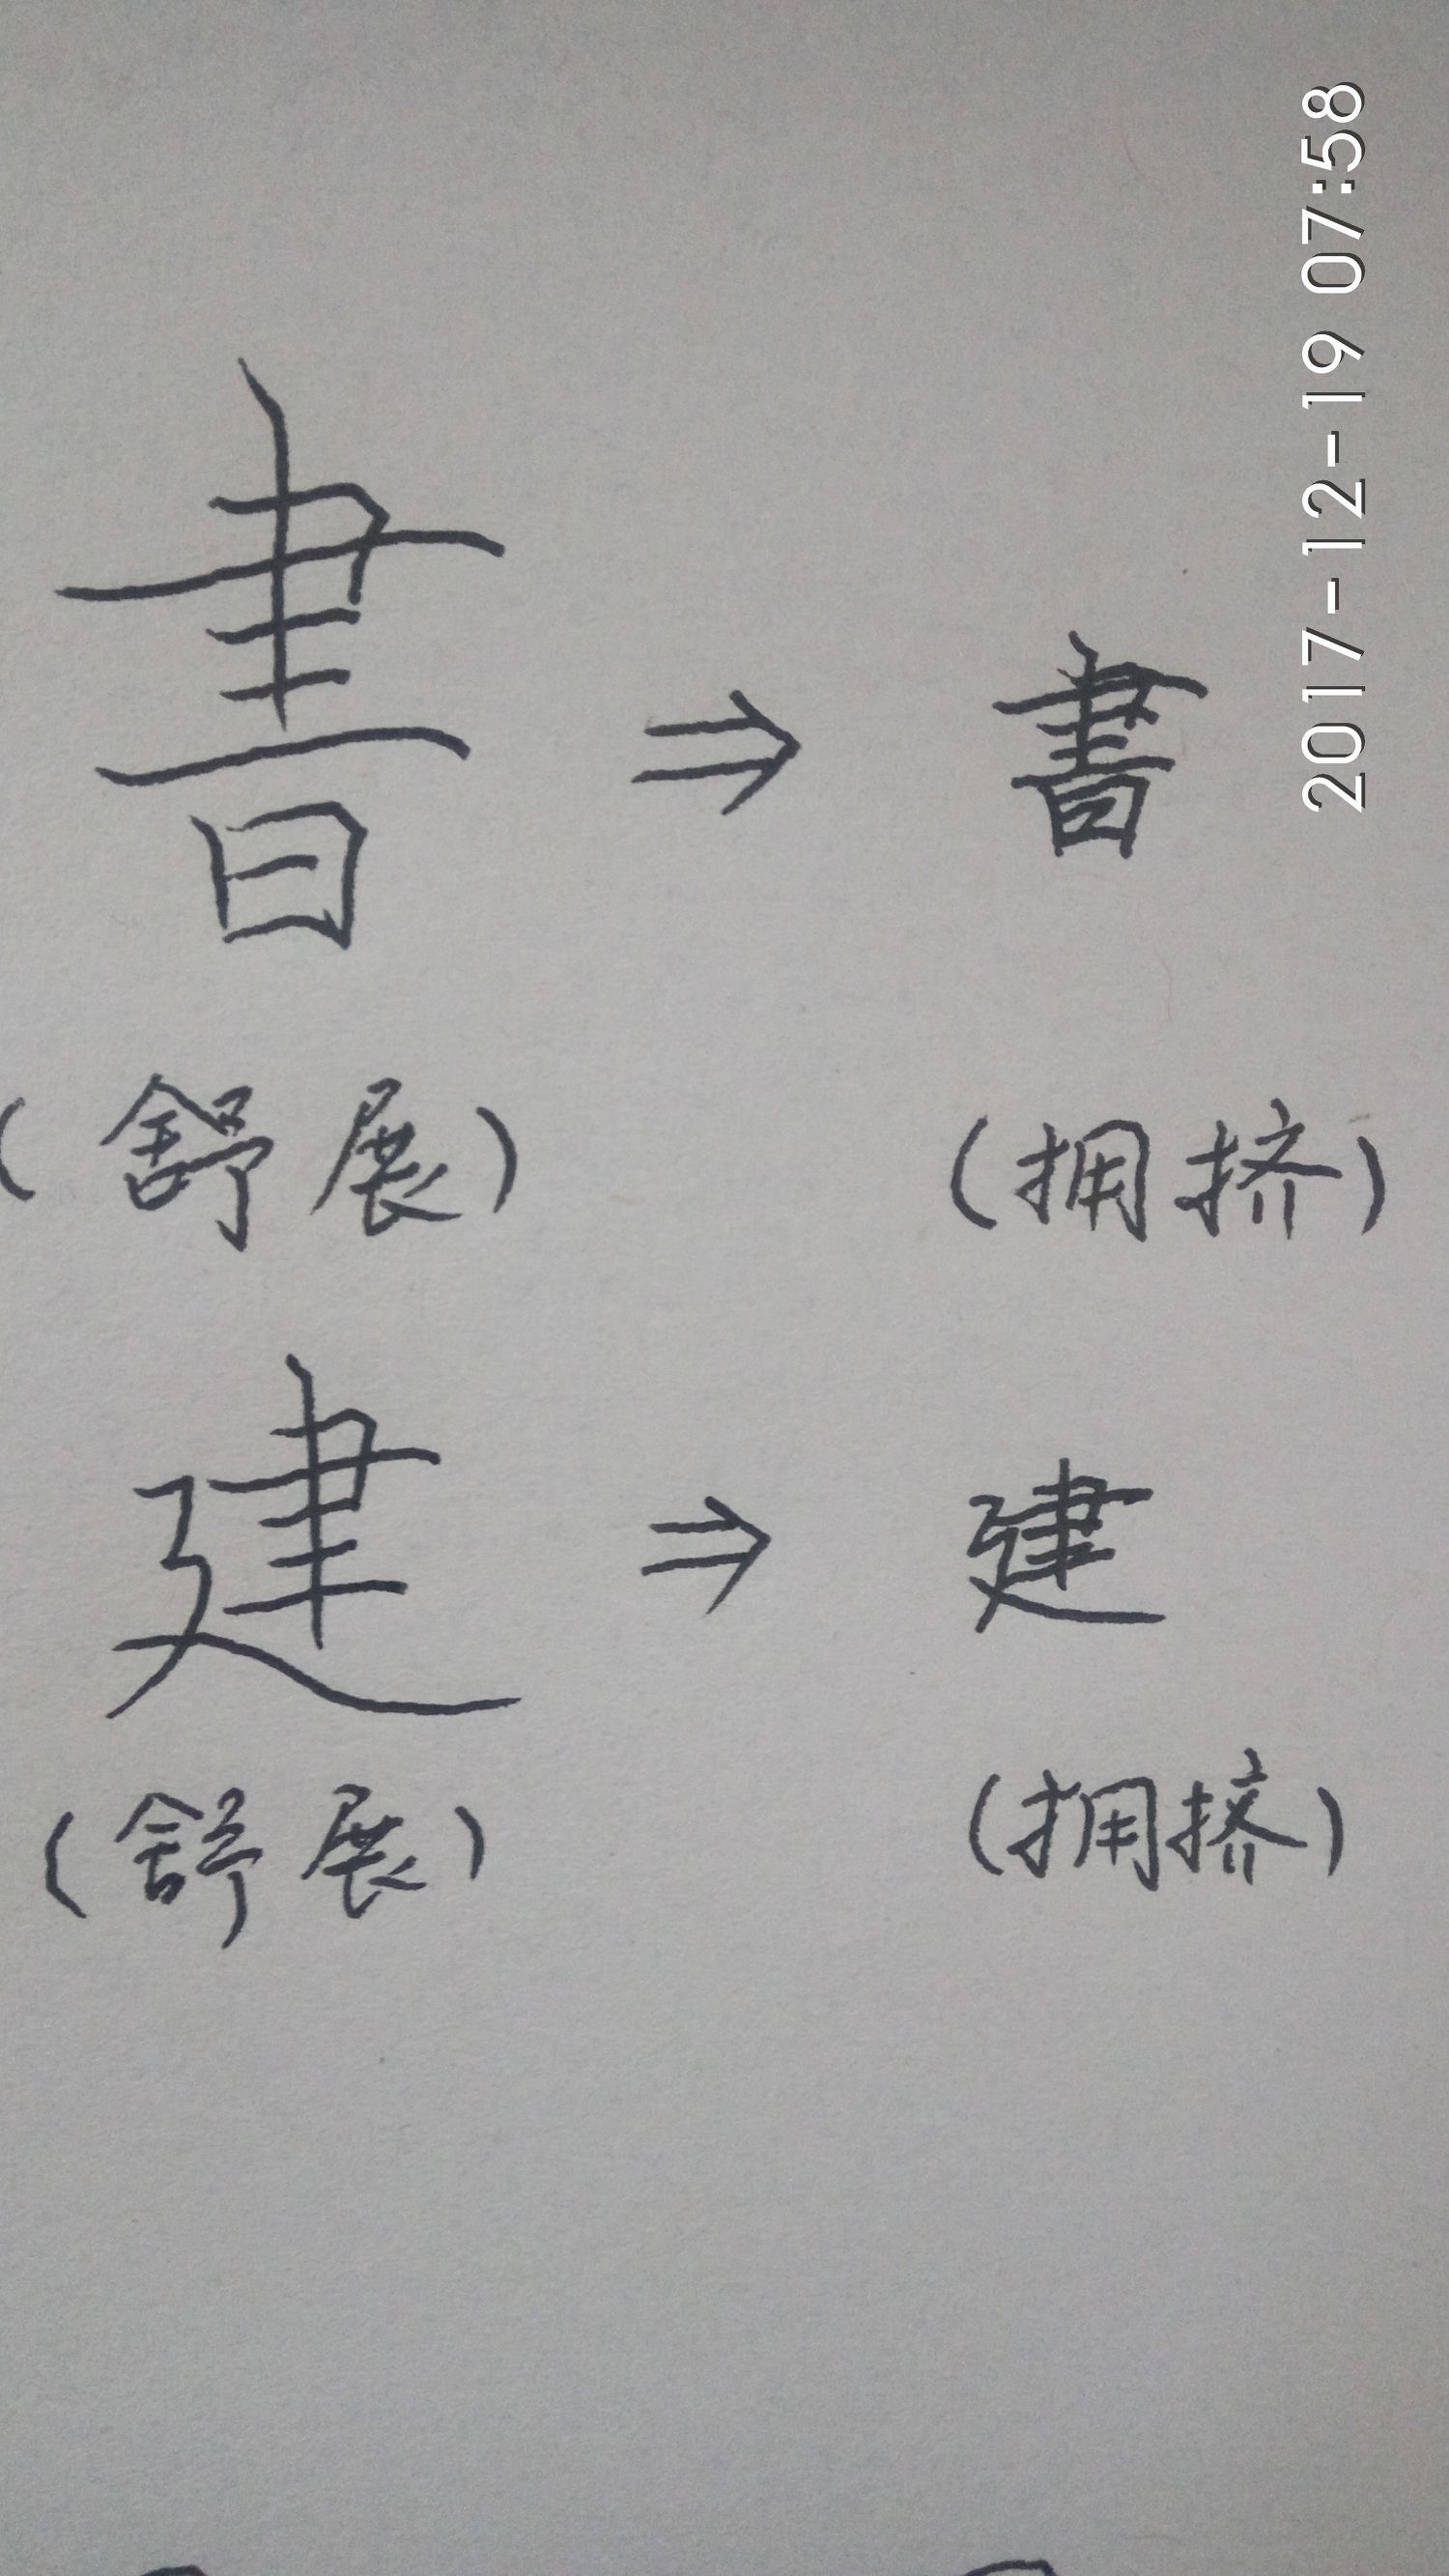 書 ⇒ 書
(舒展) (拥挤)
建 ⇒ 建
(舒展) (拥挤)
2017-12-19 07:58